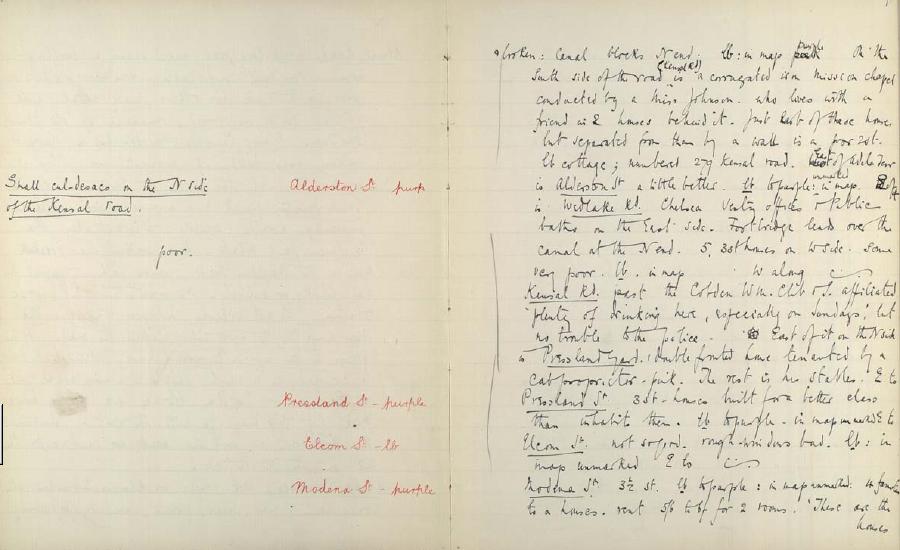 Small culsdesacs on the N side
of the Kensal road.
poor.
Alderston St purp
Pressland St - purple
Elcom St - lb
Modena St - purple
broken: Canal blocks N end. lb: in map purple On the
South side of the road (Kensal Rd) is a corrugated iron mission chapel
conducted by a Miss Johnson. who lives with a
friend in 2 houses behind it. Just East of these homes
but separated from them by a wall is a poor 2 st.
lb cottage; numbered 279 Kensal road. East of Adela Terr
is Alderson St a little better. lb to purple: in map unmarked. E of it
is Wedlake Rd. Chelsea Vestry offices & Public
baths on the East side. Footbridge leads over the
canal at the N end. 5, 3 st homes on W side. Some
very poor. lb. in map W along
Kensal Rd. past the Cobden W.M. Club & I. affiliated
'plenty of drinking here, especially on Sundays', but
no trouble to the police. East of it on the N side
is Pressland Yard. 1 double fronted house tenanted by a
cab proprietor - pink. The rest is his stables. E to
Pressland St. 3 st - houses built for a better class
than inhabit them. lb to purple - in map unmarked E to
Elcom St. not so good. rough - windows bad. lb: in
map unmarked E to
Modena St. 3½ st. lb to purple: in map unmarked.
to a house. rent 5/6 to 6/ for 2 rooms. 'These are the
houses